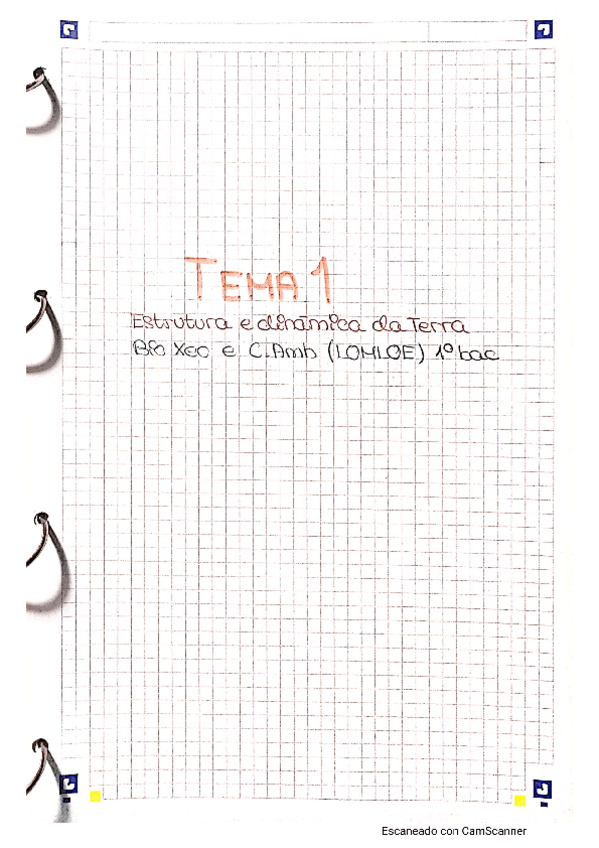 TEMA 1
Estrutura e dinámica da Terra
Bio Xeo e C.Amb (LOMLOE) 1º bac
Escaneado con CamScanner